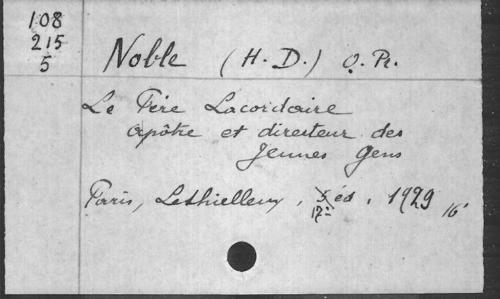 108
215
5
Noble (H. D.) O. Pr.
Le Père Lacordaire
apôtre et directeur des
Jeunes Gens
Paris, Lethielleux, éd. 1929 16°
17e